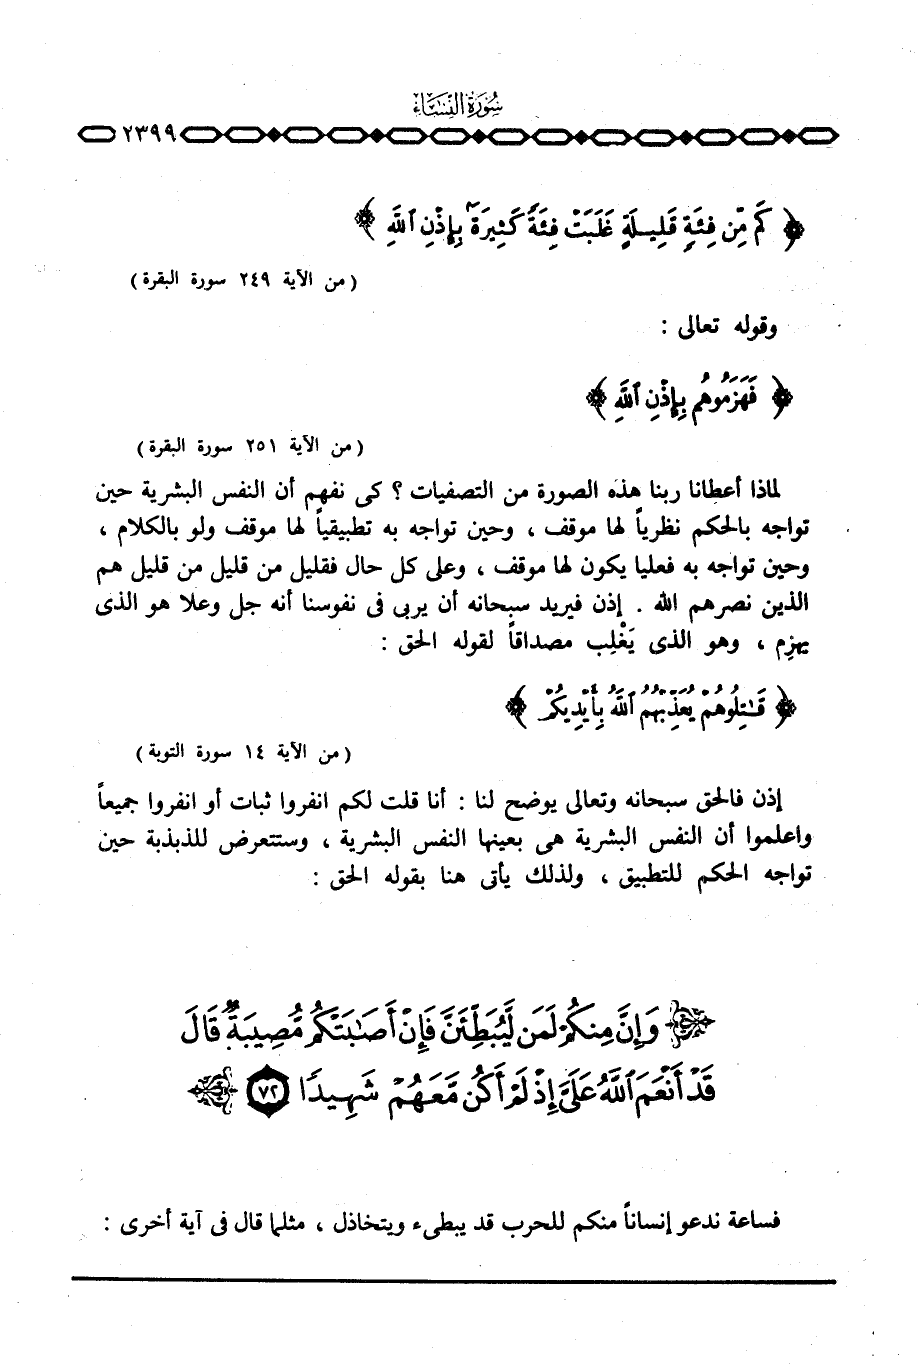 سُورَةُ النِّسَاءِ
٢٣٩٩
﴿ كَم مِّن فِئَةٍ قَلِيلَةٍ غَلَبَتْ فِئَةً كَثِيرَةً بِإِذْنِ ٱللَّهِ ﴾
( من الآية ٢٤٩ سورة البقرة )
وقوله تعالى :
﴿ فَهَزَمُوهُم بِإِذْنِ ٱللَّهِ ﴾
( من الآية ٢٥١ سورة البقرة )
لماذا أعطانا ربنا هذه الصورة من التصفيات ؟ كى نفهم أن النفس البشرية حين
تواجه بالحكم نظرياً لها موقف ، وحين تواجه به تطبيقياً لها موقف ولو بالكلام ،
وحين تواجه به فعليا يكون لها موقف ، وعلى كل حال فقليل من قليل من قليل هم
الذين نصرهم الله . إذن فيريد سبحانه أن يربى فى نفوسنا أنه جل وعلا هو الذى
يهزِم ، وهو الذى يَغْلِب مصداقاً لقوله الحق :
﴿ قَٰتِلُوهُمْ يُعَذِّبْهُمُ ٱللَّهُ بِأَيْدِيكُمْ ﴾
( من الآية ١٤ سورة التوبة )
إذن فالحق سبحانه وتعالى يوضح لنا : أنا قلت لكم انفروا ثبات أو انفروا جميعاً
واعلموا أن النفس البشرية هى بعينها النفس البشرية ، وستتعرض للذبذبة حين
تواجه الحكم للتطبيق ، ولذلك يأتى هنا بقوله الحق :
وَإِنَّ مِنكُمْ لَمَن لَّيُبَطِّئَنَّ فَإِنْ أَصَٰبَتْكُم مُّصِيبَةٌ قَالَ
قَدْ أَنْعَمَ ٱللَّهُ عَلَىَّ إِذْ لَمْ أَكُن مَّعَهُمْ شَهِيدًا ٧٢
فساعة ندعو إنساناً منكم للحرب قد يبطىء ويتخاذل ، مثلما قال فى آية أخرى :